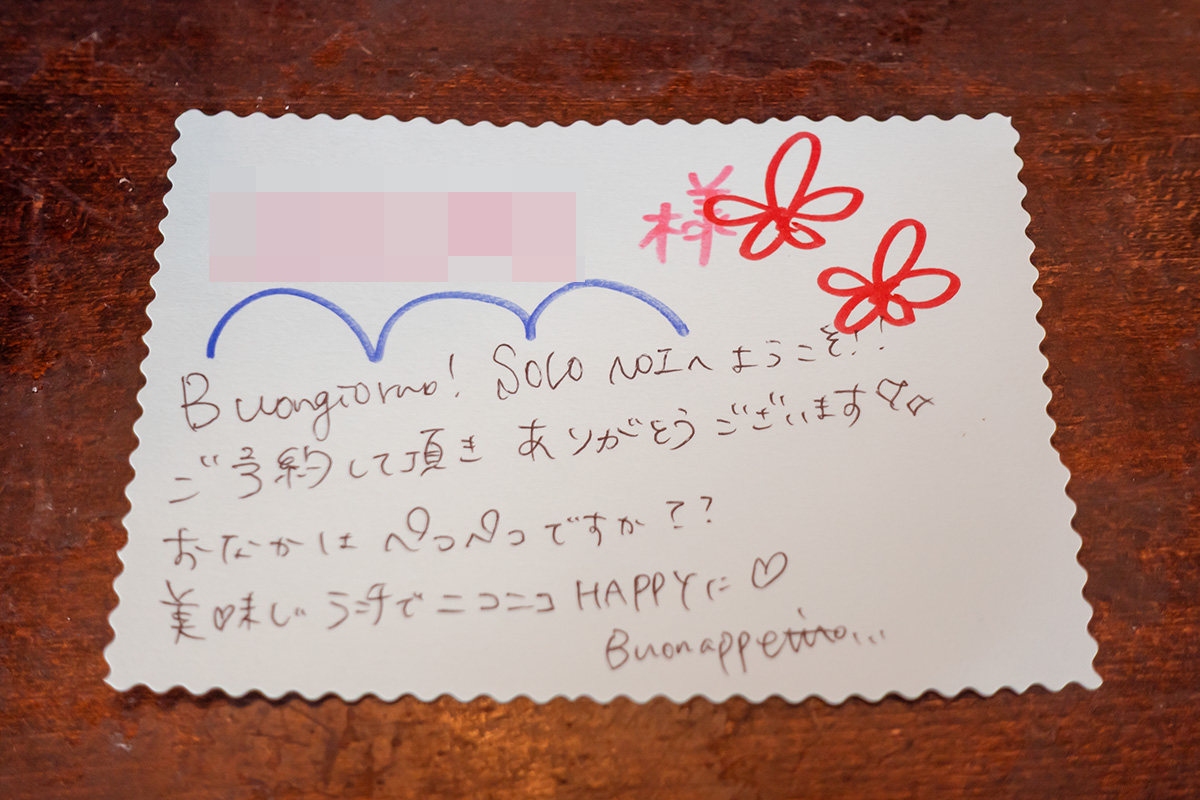 様
Buongiorno! SOLO NOIへようこそ!!
ご予約して頂き ありがとうございます♡♡
おなかは ペコペコですか??
美♡味しいランチでニコニコ HAPPYに♡
Buonappetito...